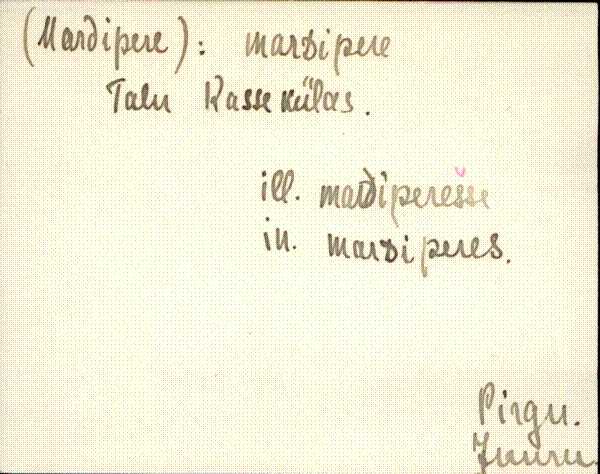 (Mardipere): marDipere
Talu Rasse külas.
ill. marDiperešse
in. marDiperes.
Pirgu.
Juuru